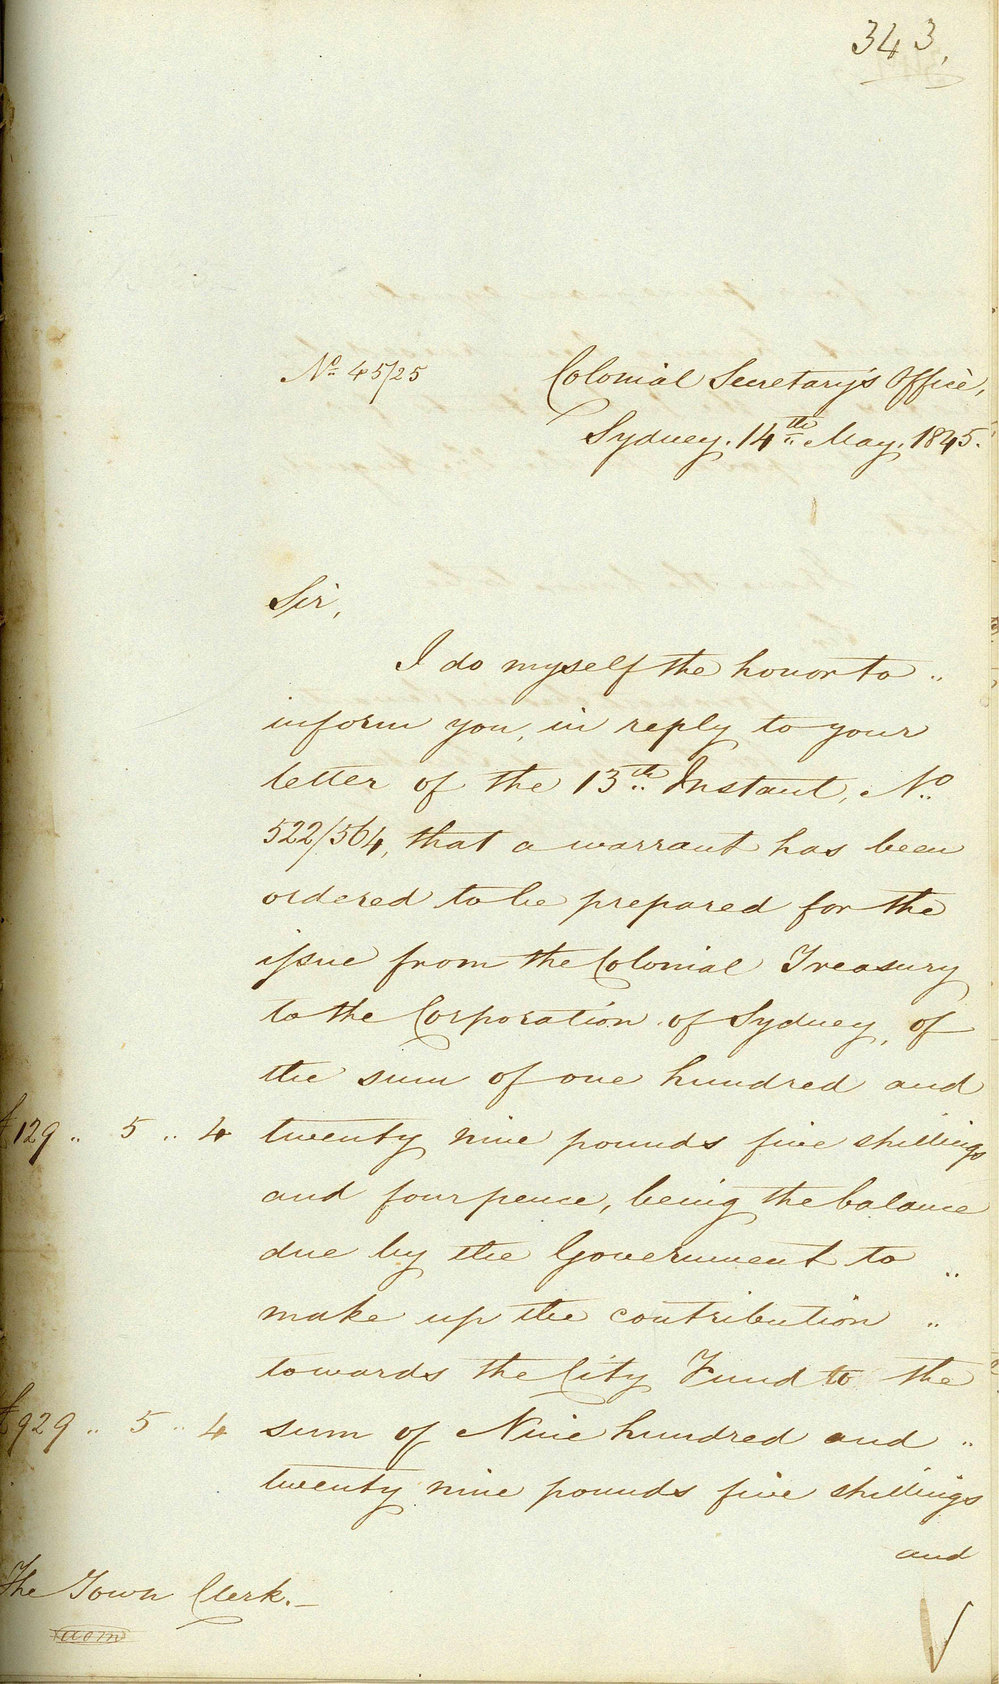 343.
No. 45/25
Colonial Secretary's Office,
Sydney. 14th May. 1845.
Sir,
I do myself the honor to "
inform you, in reply to your
letter of the 13th Instant, No.
522/564, that a warrant has been
ordered to be prepared for the
issue from the Colonial Treasury
to the Corporation of Sydney, of
the sum of one hundred and
£129 " 5 " 4 twenty nine pounds five shillings
and four pence, being the balance
due by the Government to "
make up the contribution "
towards the City Fund to the
£929 " 5 " 4 sum of Nine hundred and "
twenty nine pounds five shillings
and
The Town Clerk.—